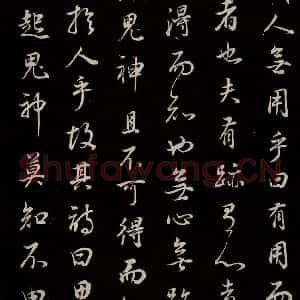 人無用乎曰有用而
者也夫有跡有心者
得而知也無心無跡
鬼神且不可得而
於人乎故其詩曰思
起鬼神莫知不由
Shufawang.CN